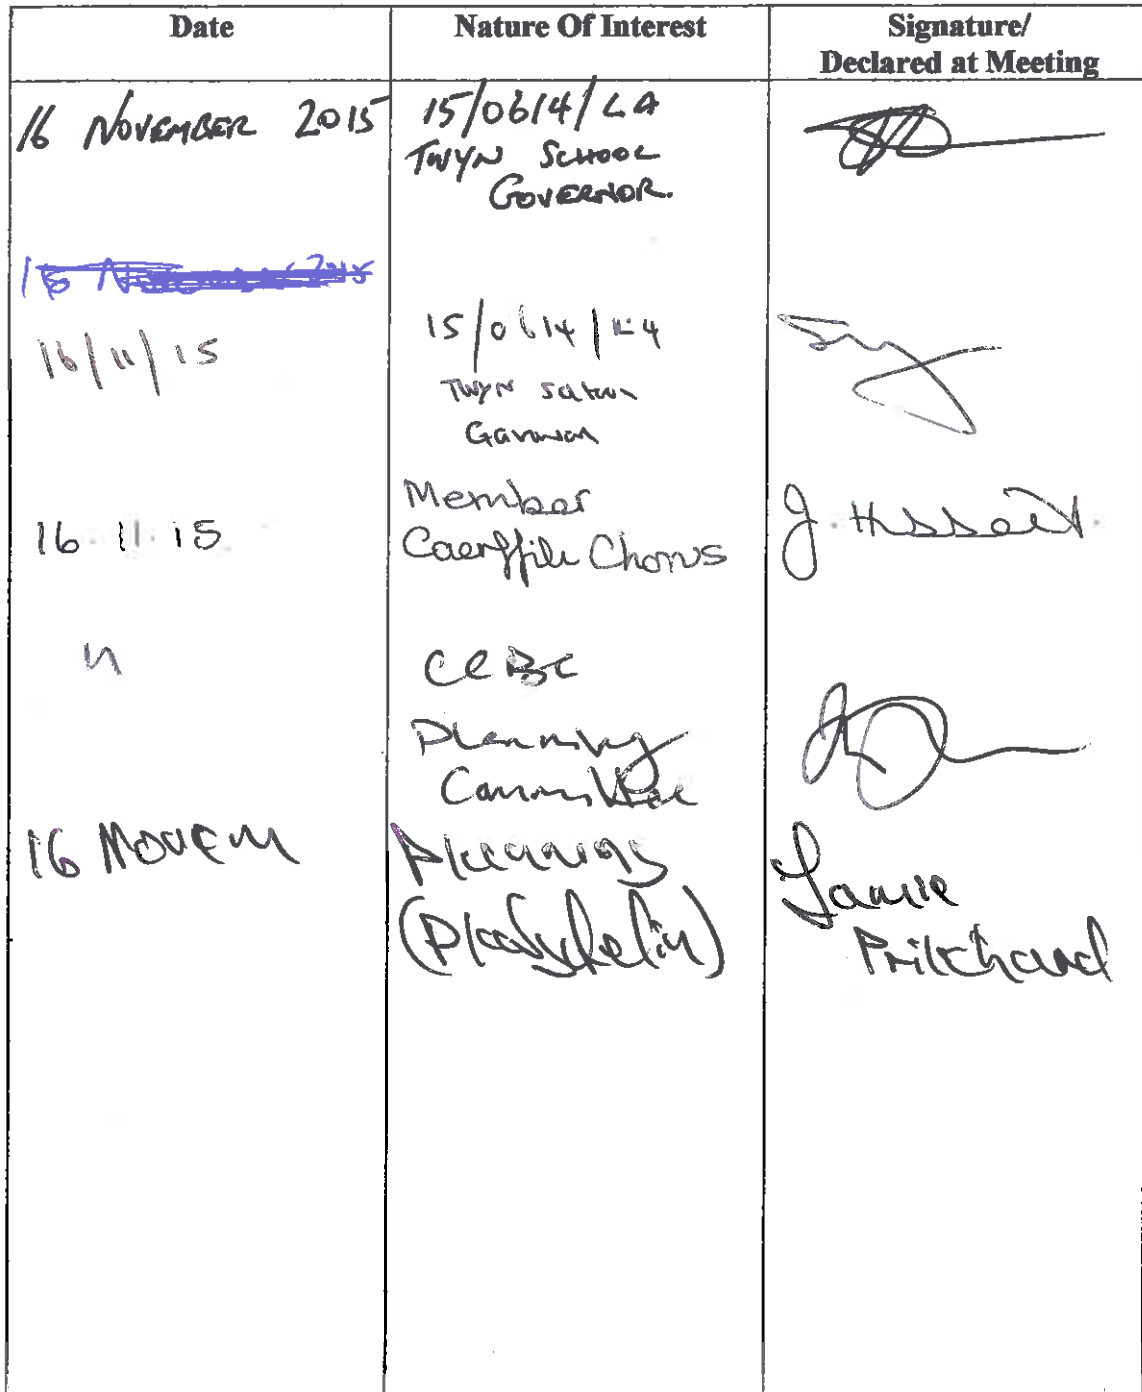 Date Nature Of Interest Signature/
Declared at Meeting
16 NOVEMBER 2015 15/0614/LA
TWYN SCHOOL
GOVERNOR.
16/11/15 15/0614/LA
TWYN
16 11 15 Member
Caerffili Chorus
J.
" CCBC
Planning
Committee
16 Planning
Jamie
Pritchard